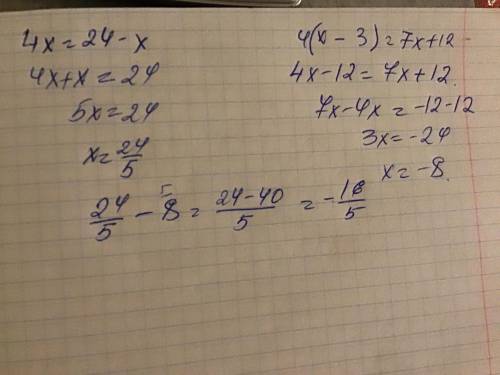 4x = 24 - x
4x + x = 24
5x = 24
x = 24/5
4(x - 3) = 7x + 12
4x - 12 = 7x + 12
7x - 4x = -12 - 12
3x = -24
x = -8.
24/5 - 8 = (24 - 40)/5 = -16/5